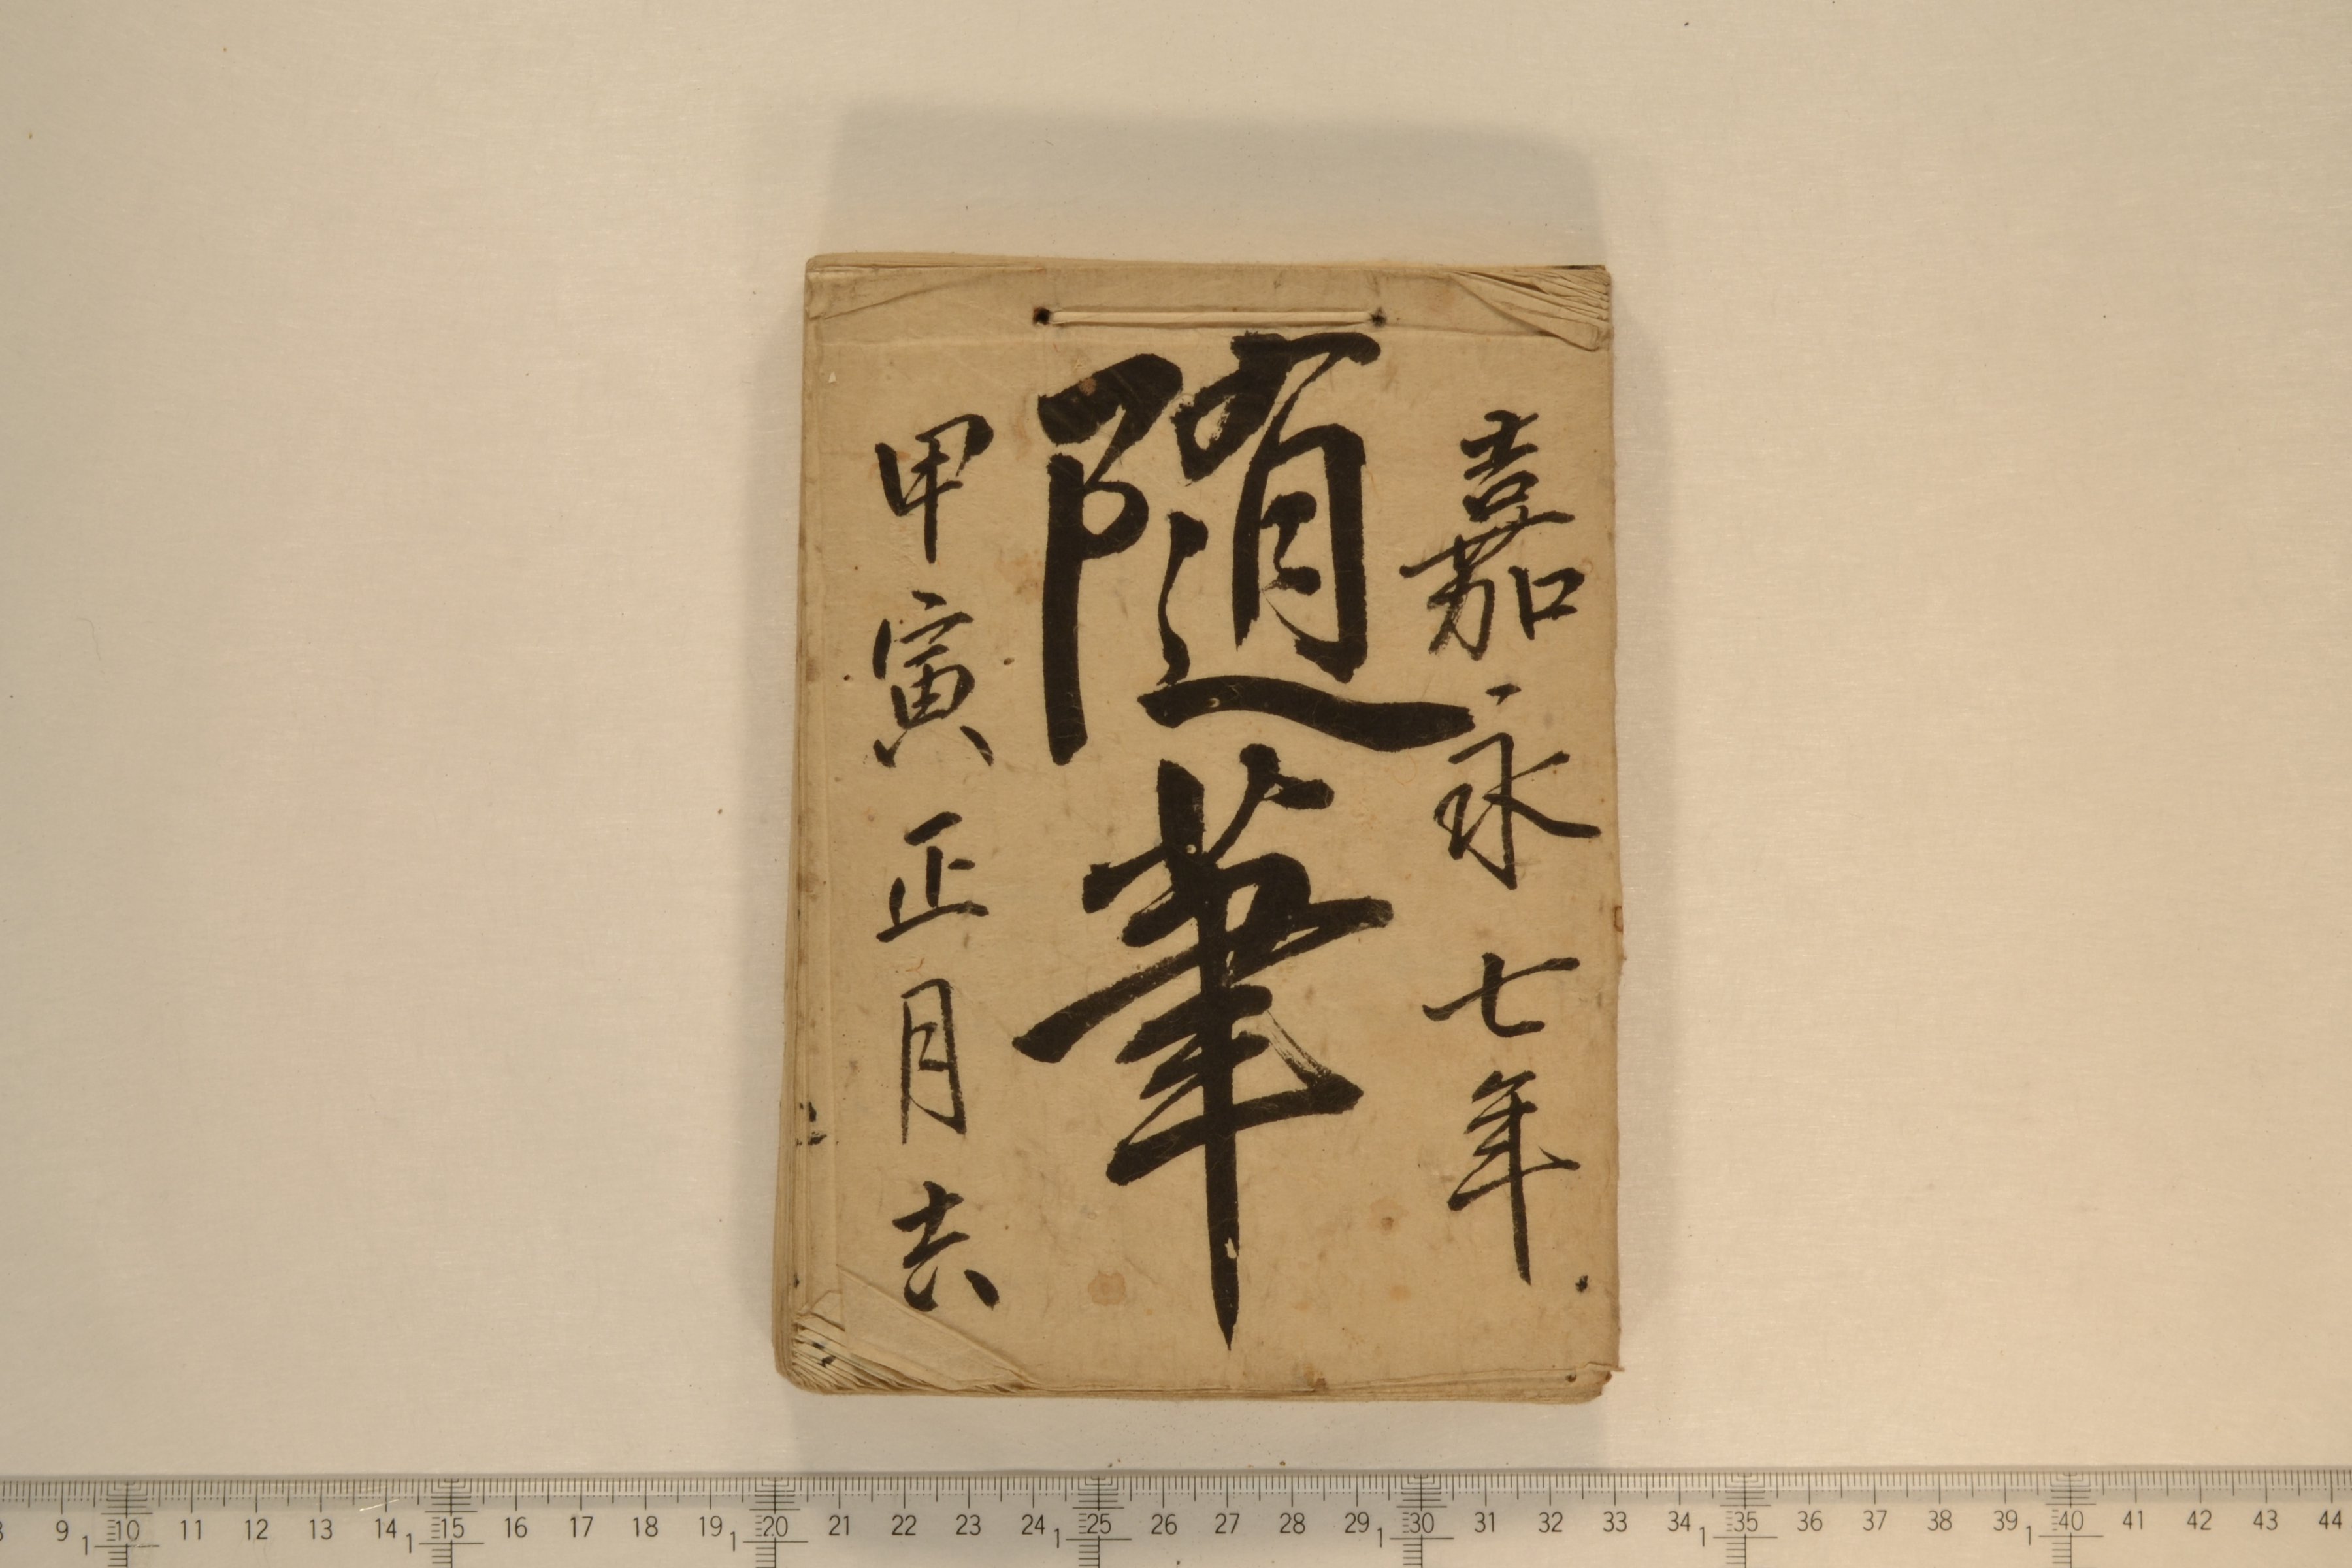 嘉永七年
随筆
甲寅正月吉
8 9 10 11 12 13 14 15 16 17 18 19 20 21 22 23 24 25 26 27 28 29 30 31 32 33 34 35 36 37 38 39 40 41 42 43 44
1 1 1 1 1 1 1